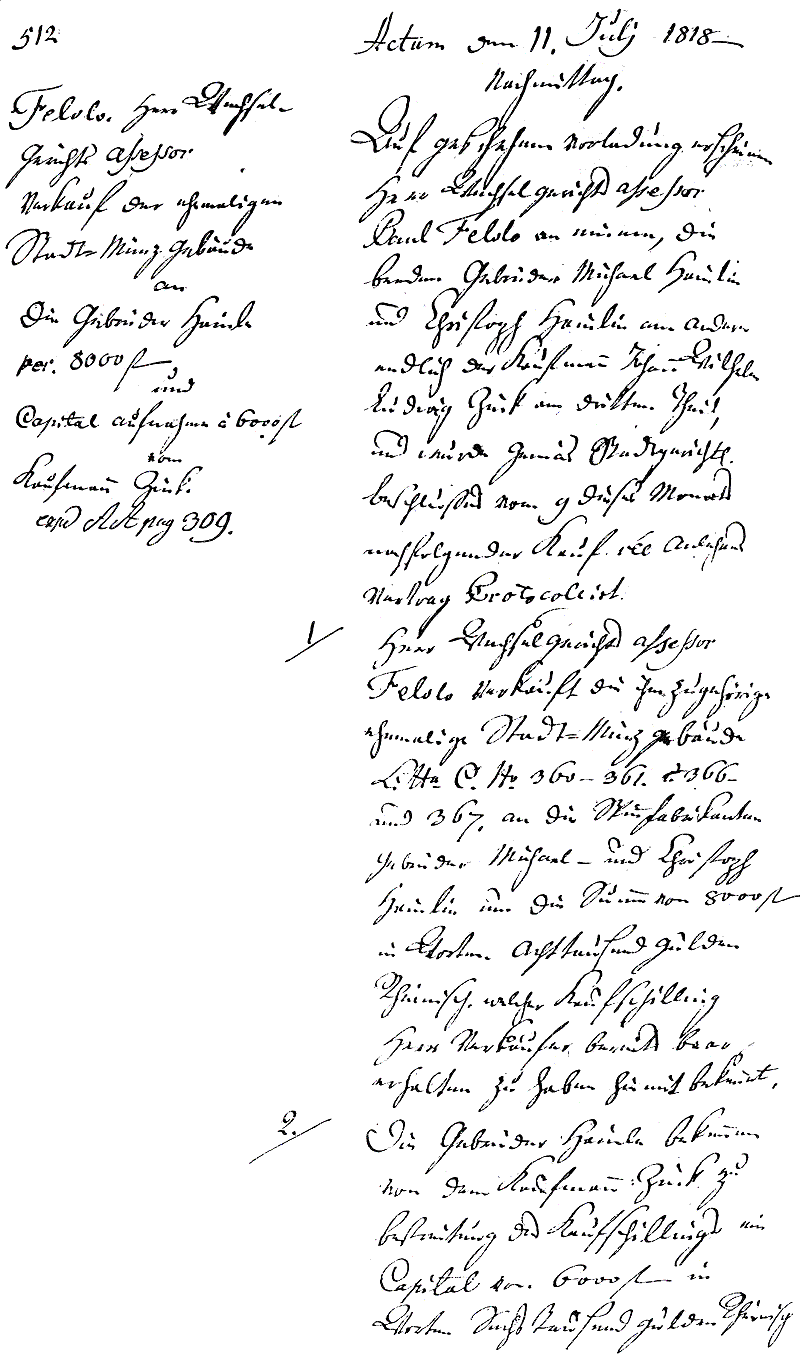 512
Felolo. Herr Wechsel-
Gerichts Assessor
Verkauf der ehemaligen
Stadt-Münz Gebäude
an
Die Gebrüder Heinle
per. 8000 f
und
Capital aufnahme à 6000 f
vom
Kaufmann Zück.
pag 309.
Actum den 11. July 1818
Nachmittag.
Auf geschehene Vorladung erscheinen
Herr Wechselgerichts Assessor
Paul Felolo an einem, die
beeden Gebrüder Michael Heinlin
und Christoph Heinlin am andern
endlich der Kaufmann Johann Wilhelm
Ludwig Zück am dritten Theil,
und wurde gemäs Stadtgerichtl.
beschlusses vom 9 dieses Monats
nachfolgender Kauf Anlehens
Vertrag Protocollirt.
1
Herr Wechselgerichts Assessor
Felolo verkauft die Ihm zugehörige
ehemalige Stadt-Münz gebäude
Litta C. No 360 – 361. 366–
und 367, an die
gebrüder Michael – und Christoph
Heinlin um die Summe von 8000 f
in Worten Achttausend gulden
Rheinisch, welchen Kaufschilling
Herr Verkäufer bereits baar
erhalten zu haben hiemit bekennt.
2.
Die Gebrüder Heinle bekennen
von dem Kaufmann Zück zu
bestreitung des Kaufschillings ein
Capital von 6000 f in
Worten Sechs Tausend gulden Rheinisch